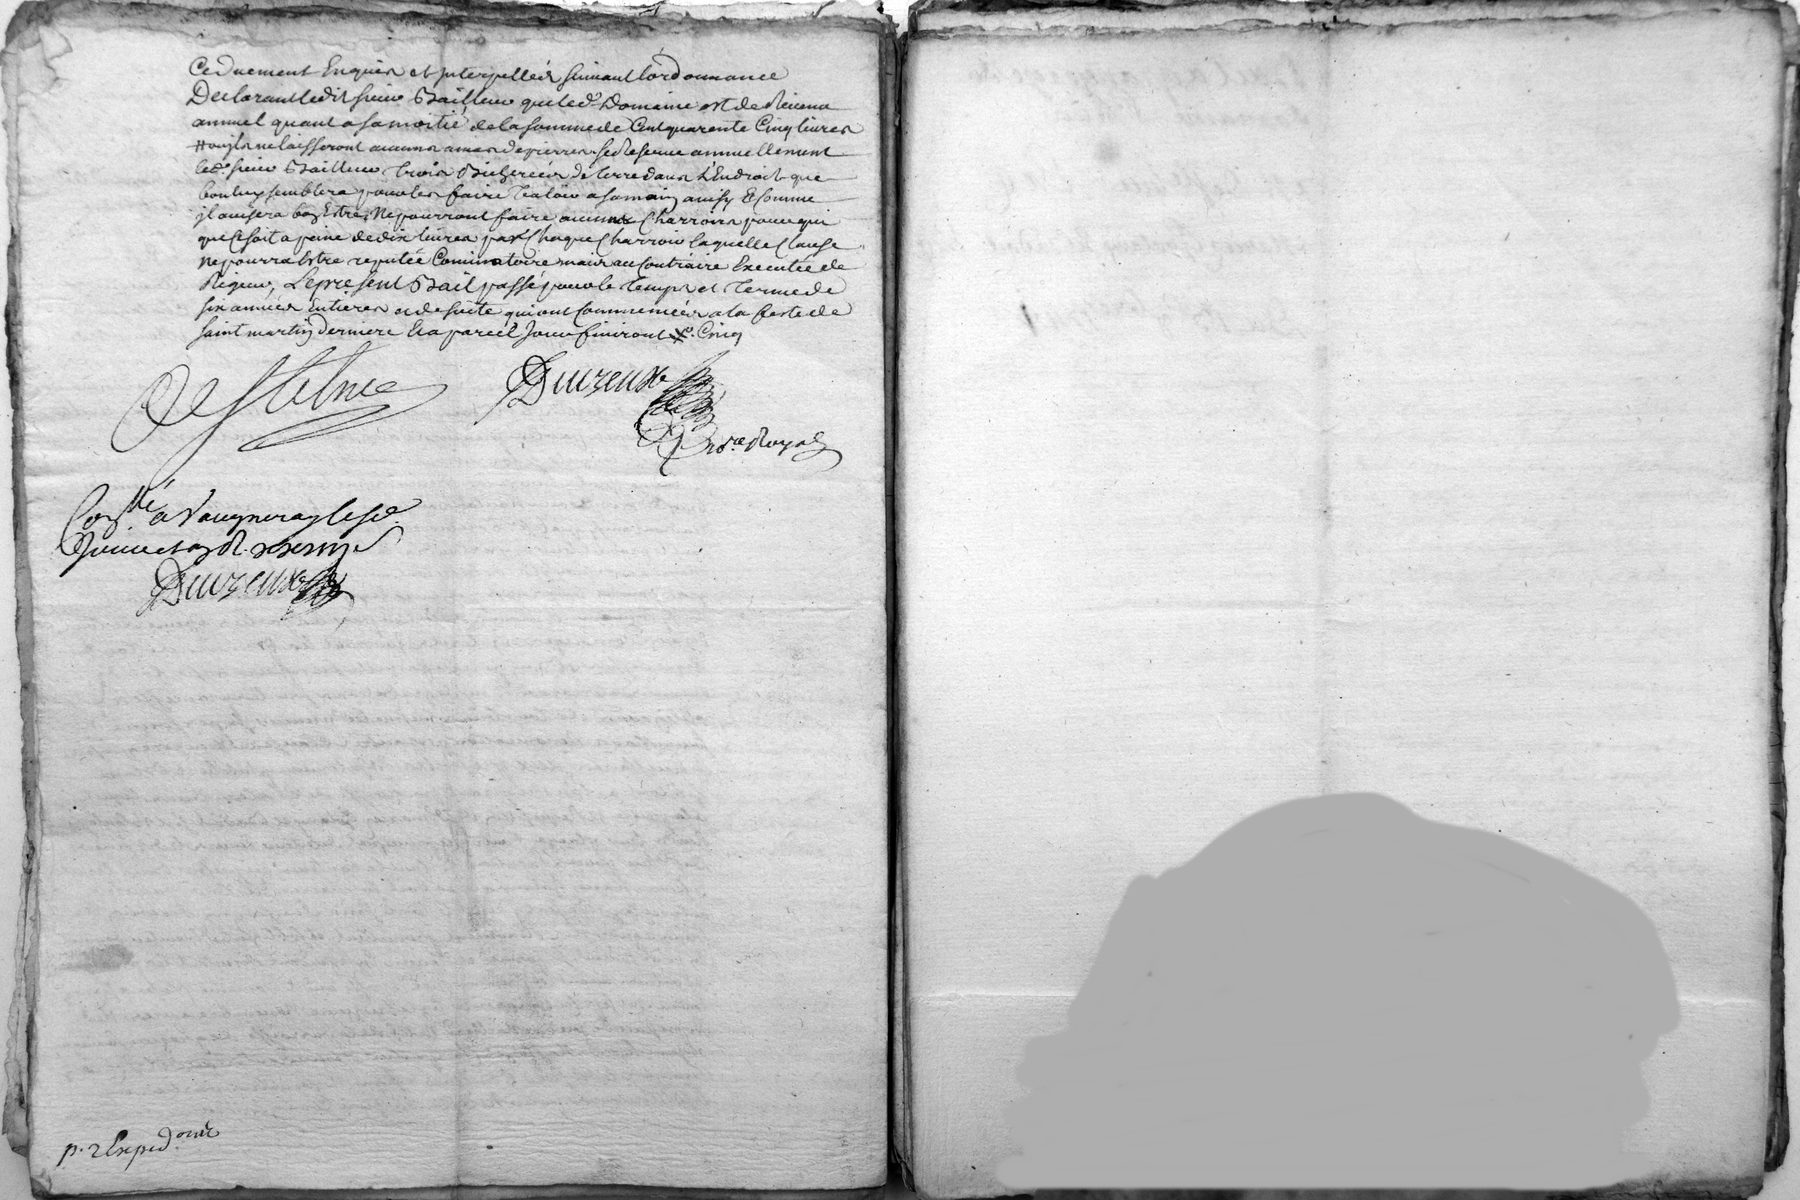 Ce duement Enquis et jnterpellés suivant l'ordonnance
Declarant ledit sieur Bailleur que led. Domaine est de Revenu
annuel quant a sa moitié de la somme de Cent quarente Cinq livres
# ou jls ne laisseront aucuns amas de pierres se Reserve annuellement
led. sieur Bailleur trois Bicherées de terre dans L'Endroit que
bon luy semblera pour les faire valoir a sa main ainsy & Comme
jl avisera bon Estre, Ne pourront faire aucuns Charrois pour qui
que Ce soit a peine de dix livres par Chaque Charroir laquelle Clause
Ne pourra Estre reputée Cominatoire mais au Contraire Executée de
Rigueur, Le present Bail passé pour le temps et terme de
six années Entieres et de suite qui ont Commencées a la feste de
saint martin derniere & a pareil Jour finiront Cinq
Duvzeux
No.re Royal
Con.llé a Vaugneray le
Duvzeux
p. 2 Exped.